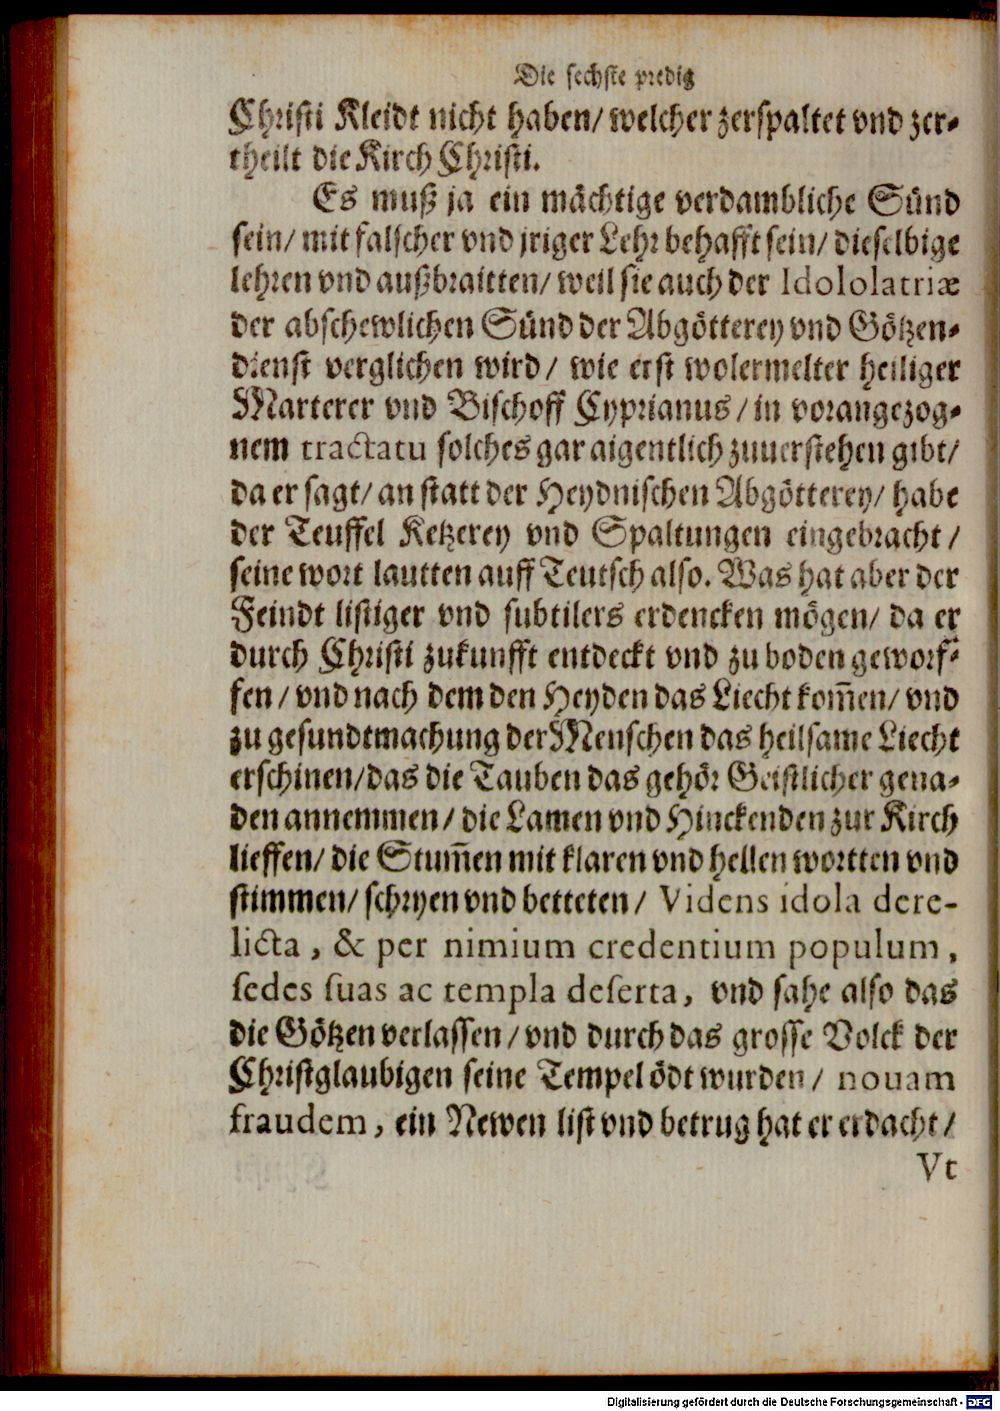 Die sechste predig
Christi Kleidt nicht haben/ welcher zerspaltet vnd zer-
theilt die Kirch Christi.
Es muß ja ein mächtige verdambliche Sünd
sein/ mit falscher vnd jriger Lehr behafft sein/ dieselbige
lehren vnd außbraitten/ weil sie auch der Idololatriæ
der abschewlichen Sünd der Abgötterey vnd Götzen-
dienst verglichen wird/ wie erst wolermelter heiliger
Marterer vnd Bischoff Cyprianus/ in vorangezog-
nem tractatu solches gar aigentlich zuuerstehen gibt/
da er sagt/ an statt der Heydnischen Abgötterey/ habe
der Teuffel Ketzerey vnd Spaltungen eingebracht/
seine wort lautten auff Teutsch also. Was hat aber der
Feindt listiger vnd subtilers erdencken mögen/ da er
durch Christi zukunfft entdeckt vnd zu boden geworf-
fen/ vnd nach dem den Heyden das Liecht kom̃en/ vnd
zu gesundtmachung der Menschen das heilsame Liecht
erschinen/ das die Tauben das gehör Geistlicher gena-
den annemmen/ die Lamen vnd Hinckenden zur Kirch
lieffen/ die Stum̃en mit klaren vnd hellen wortten vnd
stimmen/ schryen vnd betteten/ Videns idola dere-
licta, & per nimium credentium populum,
sedes suas ac templa deserta, vnd sahe also das
die Götzen verlassen/ vnd durch das grosse Volck der
Christglaubigen seine Tempel ödt wurden/ nouam
fraudem, ein Newen list vnd betrug hat er erdacht/
Vt
Digitalisierung gefördert durch die Deutsche Forschungsgemeinschaft - DFG